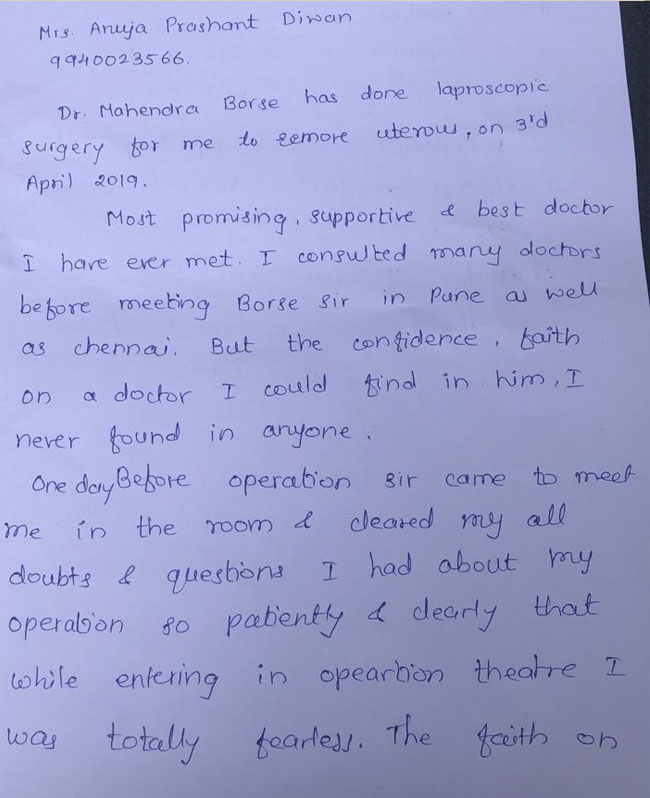 Mrs. Anuja Prashant Diwan
9940023566.
Dr. Mahendra Borse has done laproscopic
surgery for me to remove uterous, on 3rd
April 2019.
Most promising, supportive & best doctor
I have ever met. I consulted many doctors
before meeting Borse sir in Pune as well
as chennai. But the confidence, faith
on a doctor I could find in him, I
never found in anyone.
One day Before operation sir came to meet
me in the room & cleared my all
doubts & questions I had about my
operation so patiently & clearly that
while entering in opeartion theatre I
was totally fearless. The faith on